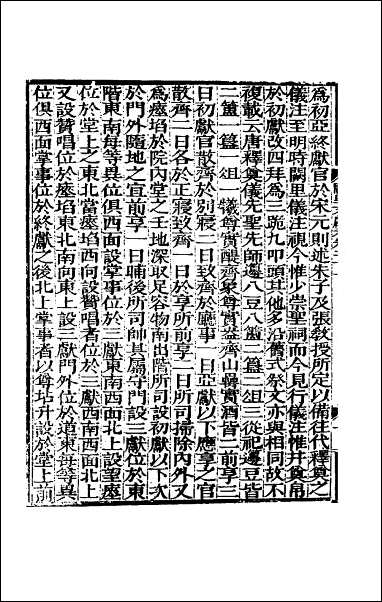 為初亞終獻官於宋元則述朱子及張敎授所定以備往代釋奠之
儀注至明時闕里儀注視今惟少崇聖祠而今見行儀注惟并奠帛
於初獻改四拜爲三跪九叩頭其他多沿舊式祭文亦與相同故不
複載云唐釋奠儀先聖先師籩八豆八簋二簠二俎三從祀籩豆皆
二簋一簠一俎一犧尊實醴齊象尊實盎齊山罍實酒皆二前享三
日初獻官散齊於別寢二日致齊於廳事一日亞獻以下應享之官
散齊二日各於正寢致齊一日於享所前享一日所司掃除內外又
為瘞埳於院內堂之壬地深取足容物南出陛所司設初獻以下次
於門外隨地之宜前享一日晡後所司帥其屬守門設三獻位於東
階東南每等異位俱西面設掌事位於三獻東南西面北上設望瘞
位於堂上之東北當瘞埳西向設贊唱者位於三獻西南西面北上
又設贊唱位於瘞埳東北南向東上設三獻門外位於道東每等異
位俱西面掌事位於終獻之後北上掌事者以尊坫升設於堂上前